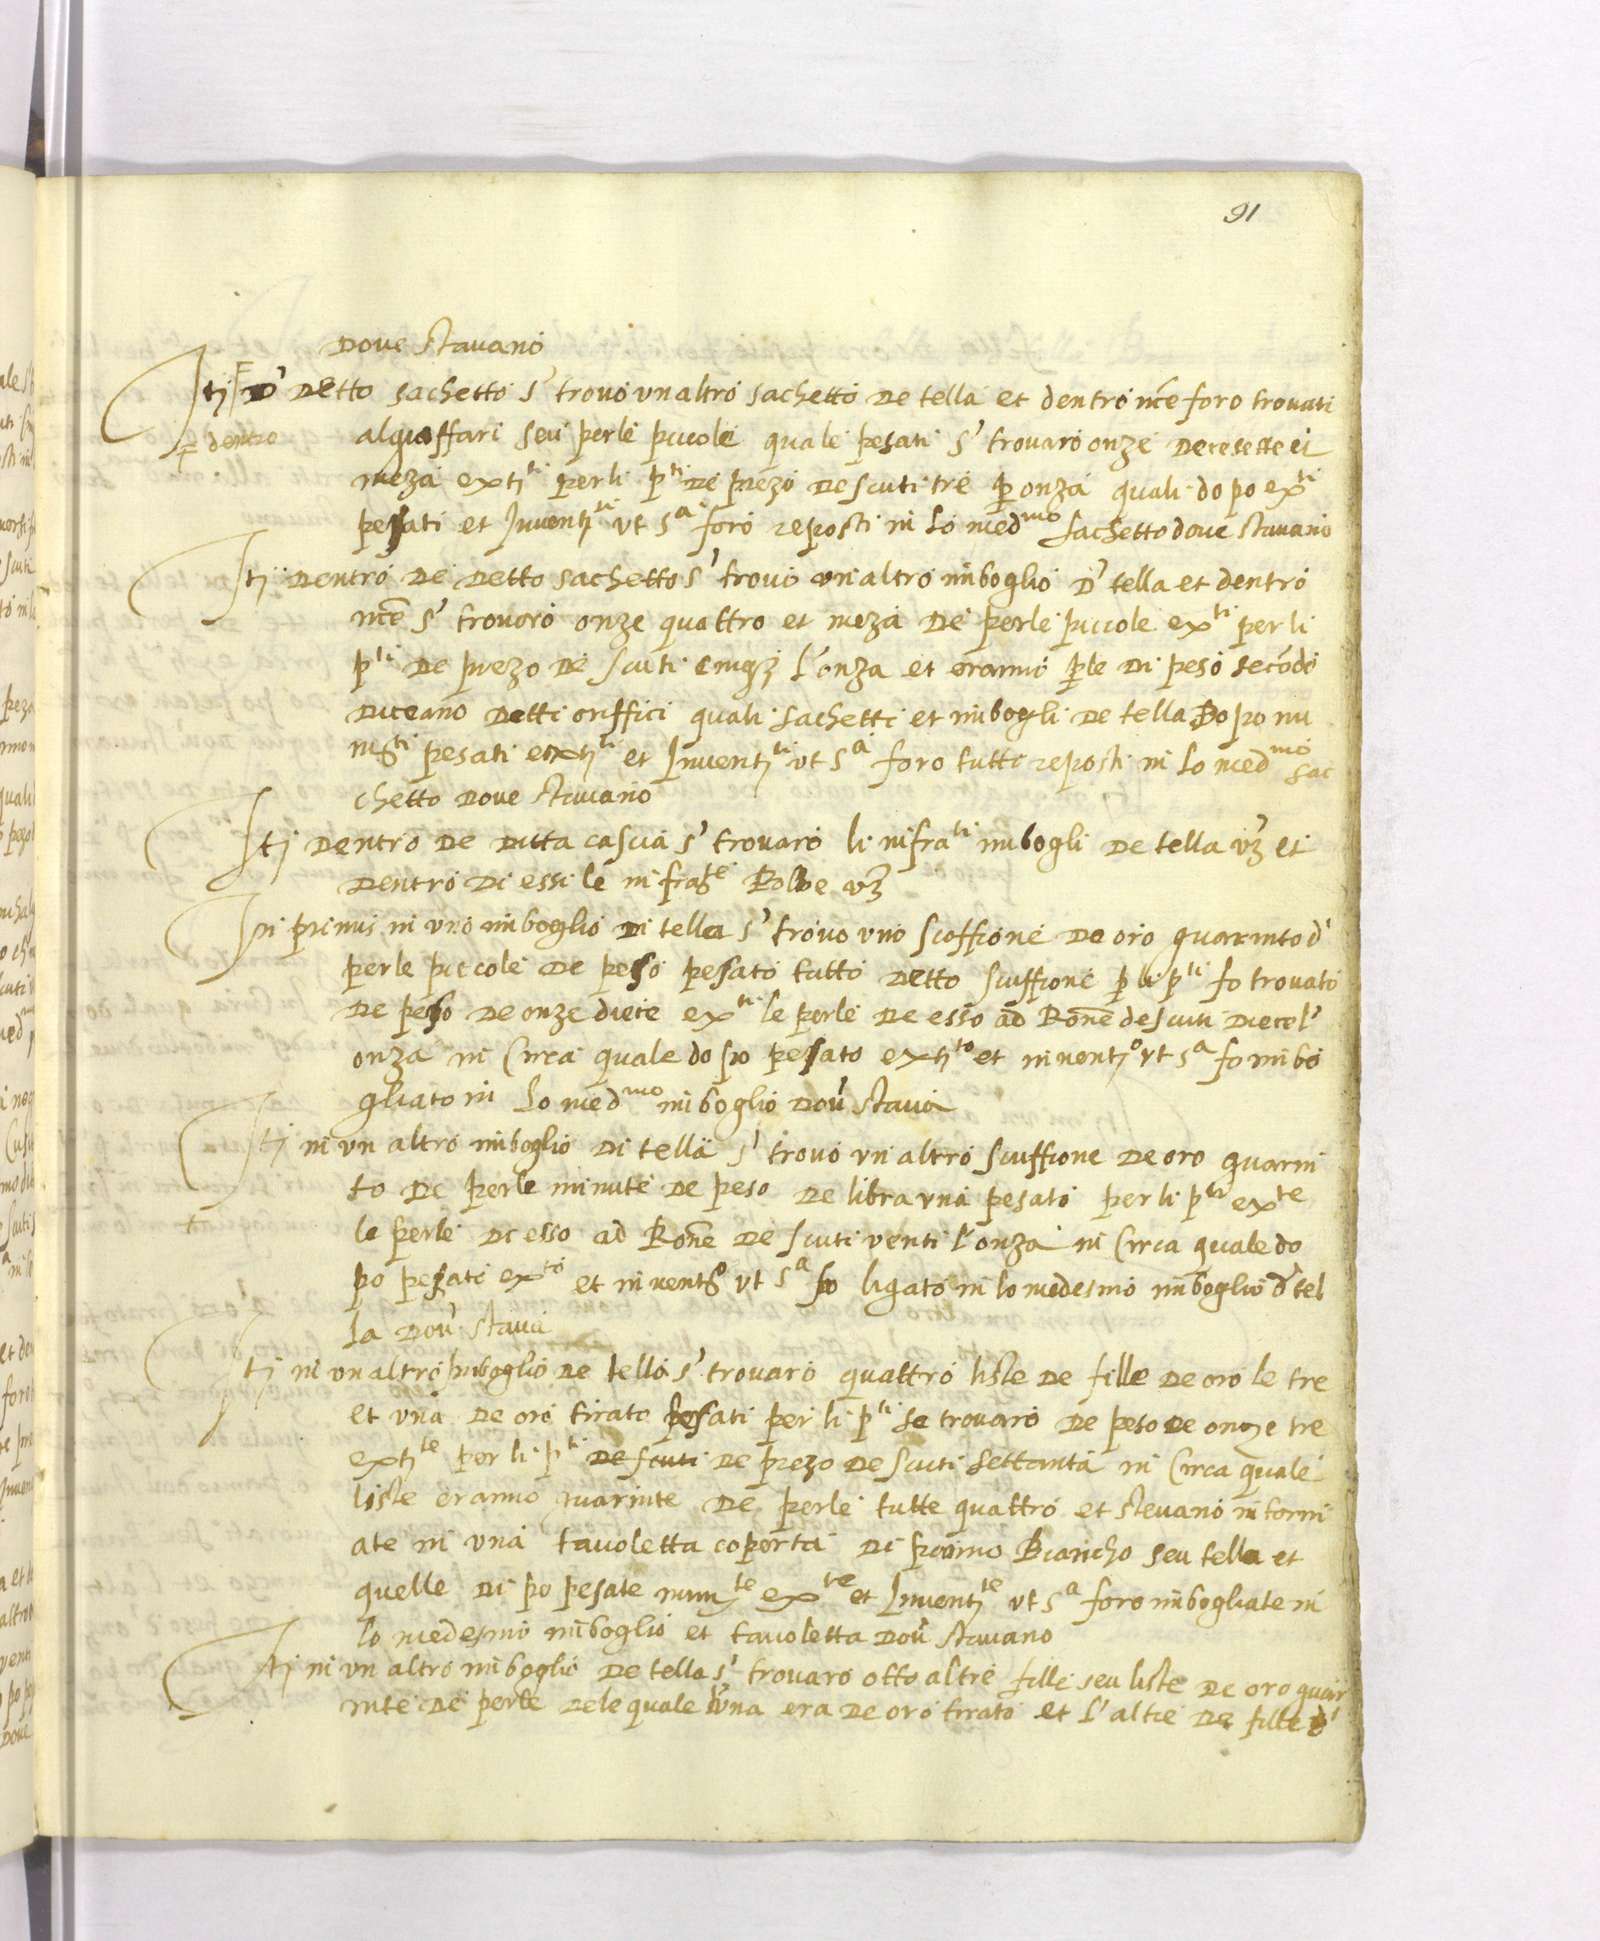 91
Dove stavano
Itj D' Detto sachetto s' trovò un altro sachetto De tella et dentro nce foro trovati
dentro
algioffari seu perle piccole quale pesati s' trovaro onze Decesette et
meza extj^ti per li p^ti De prezo De scuti tre p onza quali dopo ex^ti
pesati et Inventj^ti ut s^a foro reposti in lo med^mo sachetto dove stavano
Itj Dentro De Detto sachetto s' trovò un altro imboglio D' tella et dentro
nce s' trovoro onze quattro et meza De perle piccole ex^ti per li
p^ti De prezo De scuti cinqz l'onza et eranno ple Di peso secōdo
Diceano Detti oriffici quali sachetti et imbogli De tella Dopo nu
m^ti pesati extj^ti et Inventj^ti ut s^a foro tutti reposti in lo med^mo sac
chetto Dove stavano
Itj Dentro De Ditta cascia s' trovaro li infra^ti imbogli De tella vz et
Dentro Di essi le infra^te Robbe vz
In primis in uno imboglio Di tella s' trovò uno scoffione De oro guarnito d'
perle piccole De peso pesato tutto Detto scuffione p li p^ti fo trovato
De peso De onze diece ex^ti le perle De esso ad Rone de scuti Diece l'
onza in Circa quale dopo pesato extj^to et inventj^o ut s^a fo imbo
gliato in lo med^mo imboglio Dov' stava
Itj in un altro imboglio Di tella s' trovò un altro scuffione De oro guarni
to De perle minute De peso De libra una pesato per li p^ti ex^te
le perle Di esso ad Rone De scuti venti l'onza in Circa quale do
po pesato ex^to et invent^o ut s^a fo ligato in lo medesmo imboglio d' tel
la Dov' stava
Itj in un altro imboglio De tella s' trovaro quattro liste De fille De oro le tre
et una De oro tirato pesati per li p^ti se trovaro De peso De onze tre
extj^te per li p^ti De scuti De prezo De scuti settanta in Circa quale
liste eranno guarnite De perle tutte quattro et stevano intorni
ate in una tavoletta coperta Di panno Biancho seu tella et
quelle Di po pesate num^te ex^te et Inventj^te ut s^a foro imbogliate in
lo medesmo imboglio et tavoletta Dov' stavano
Itj in un altro imboglio De tella s' trovaro otto altre fille seu liste De oro guar
nite De perle Dele quale l'una era De oro tirato et l'altre De fille d'